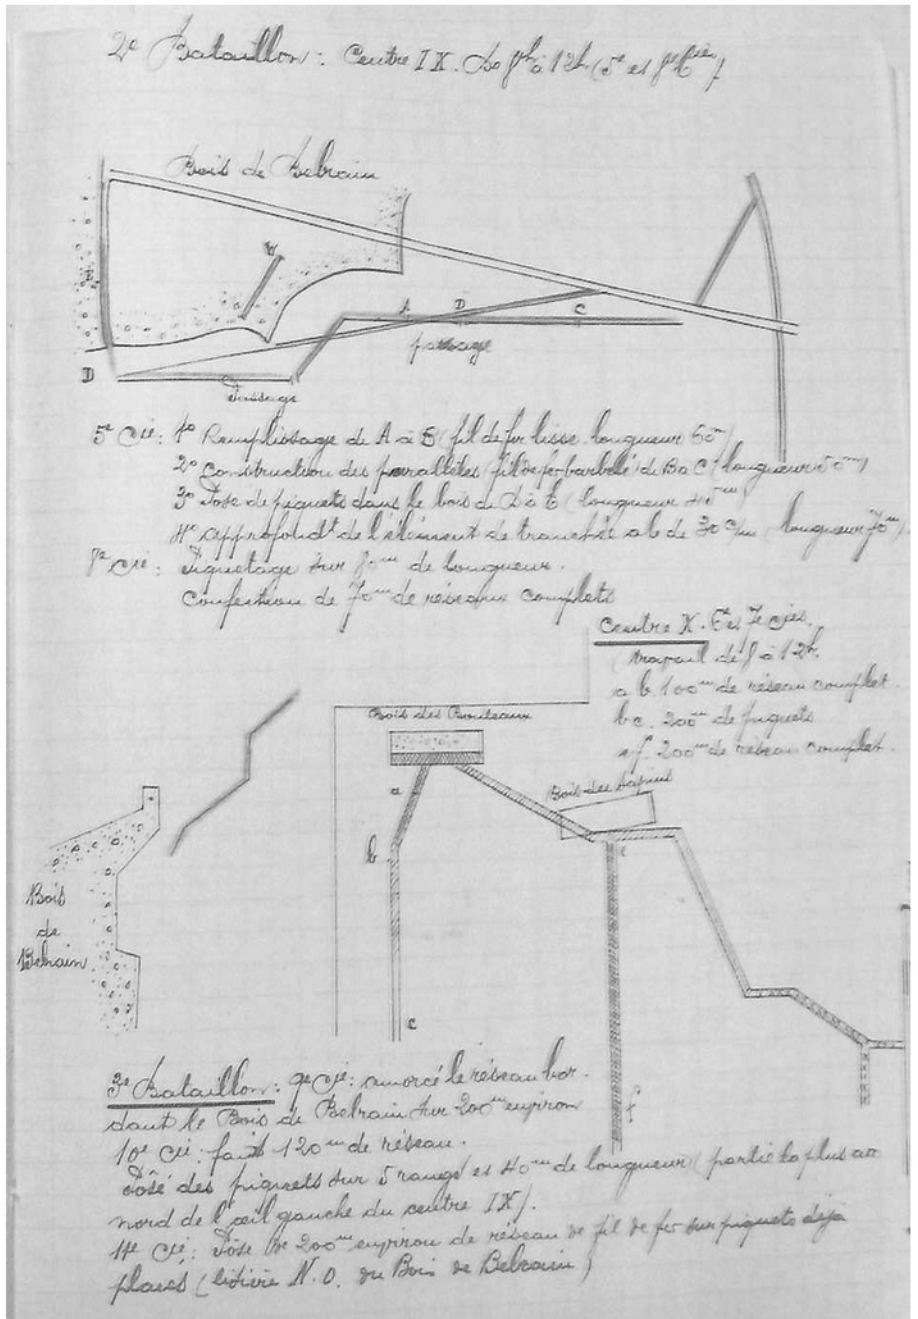 2e Bataillon : Centre IX. de 8h à 12h (5e et 8e Cies)
Bois de Belrain
A D C
passage
D
Passage
5e Cie : 1° Remplissage de A à B (fil de fer lisse longueur 60m)
2° Construction des parallèles (fil de fer barbelé) de B à C (longueur 50m)
3° Pose de piquets dans le bois de D à E (longueur 45m)
4° approfondt de l'élément de tranchée ab de 30 c/m (longueur 70m).
8e Cie : Piquetage sur 80m de longueur.
Confection de 70m de réseaux complets
Centre X. 6e et 7e Cies.
travail de 8 à 12h.
a b. 100m de réseau complet.
b c. 200m de piquets
e f. 200m de réseau complet.
Bois des Bouleaux
Bois des Sapins
a
b
e
Bois
de
Belrain
c
f
3e Bataillon : 9e Cie : amorcé le réseau bor-
dant le Bois de Belrain sur 200m environ
10e Cie : fait 120m de réseau.
Posé des piquets sur 5 rangs et 40m de longueur (partie la plus au
nord de l'œil gauche du centre IX).
11e Cie : Pose de 200m environ de réseau de fil de fer sur piquets déjà
placés (lisière N.O. du Bois de Belrain)